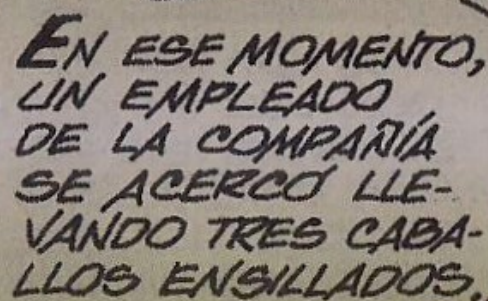 EN ESE MOMENTO,
UN EMPLEADO
DE LA COMPAÑÍA
SE ACERCÓ LLE-
VANDO TRES CABA-
LLOS ENSILLADOS.